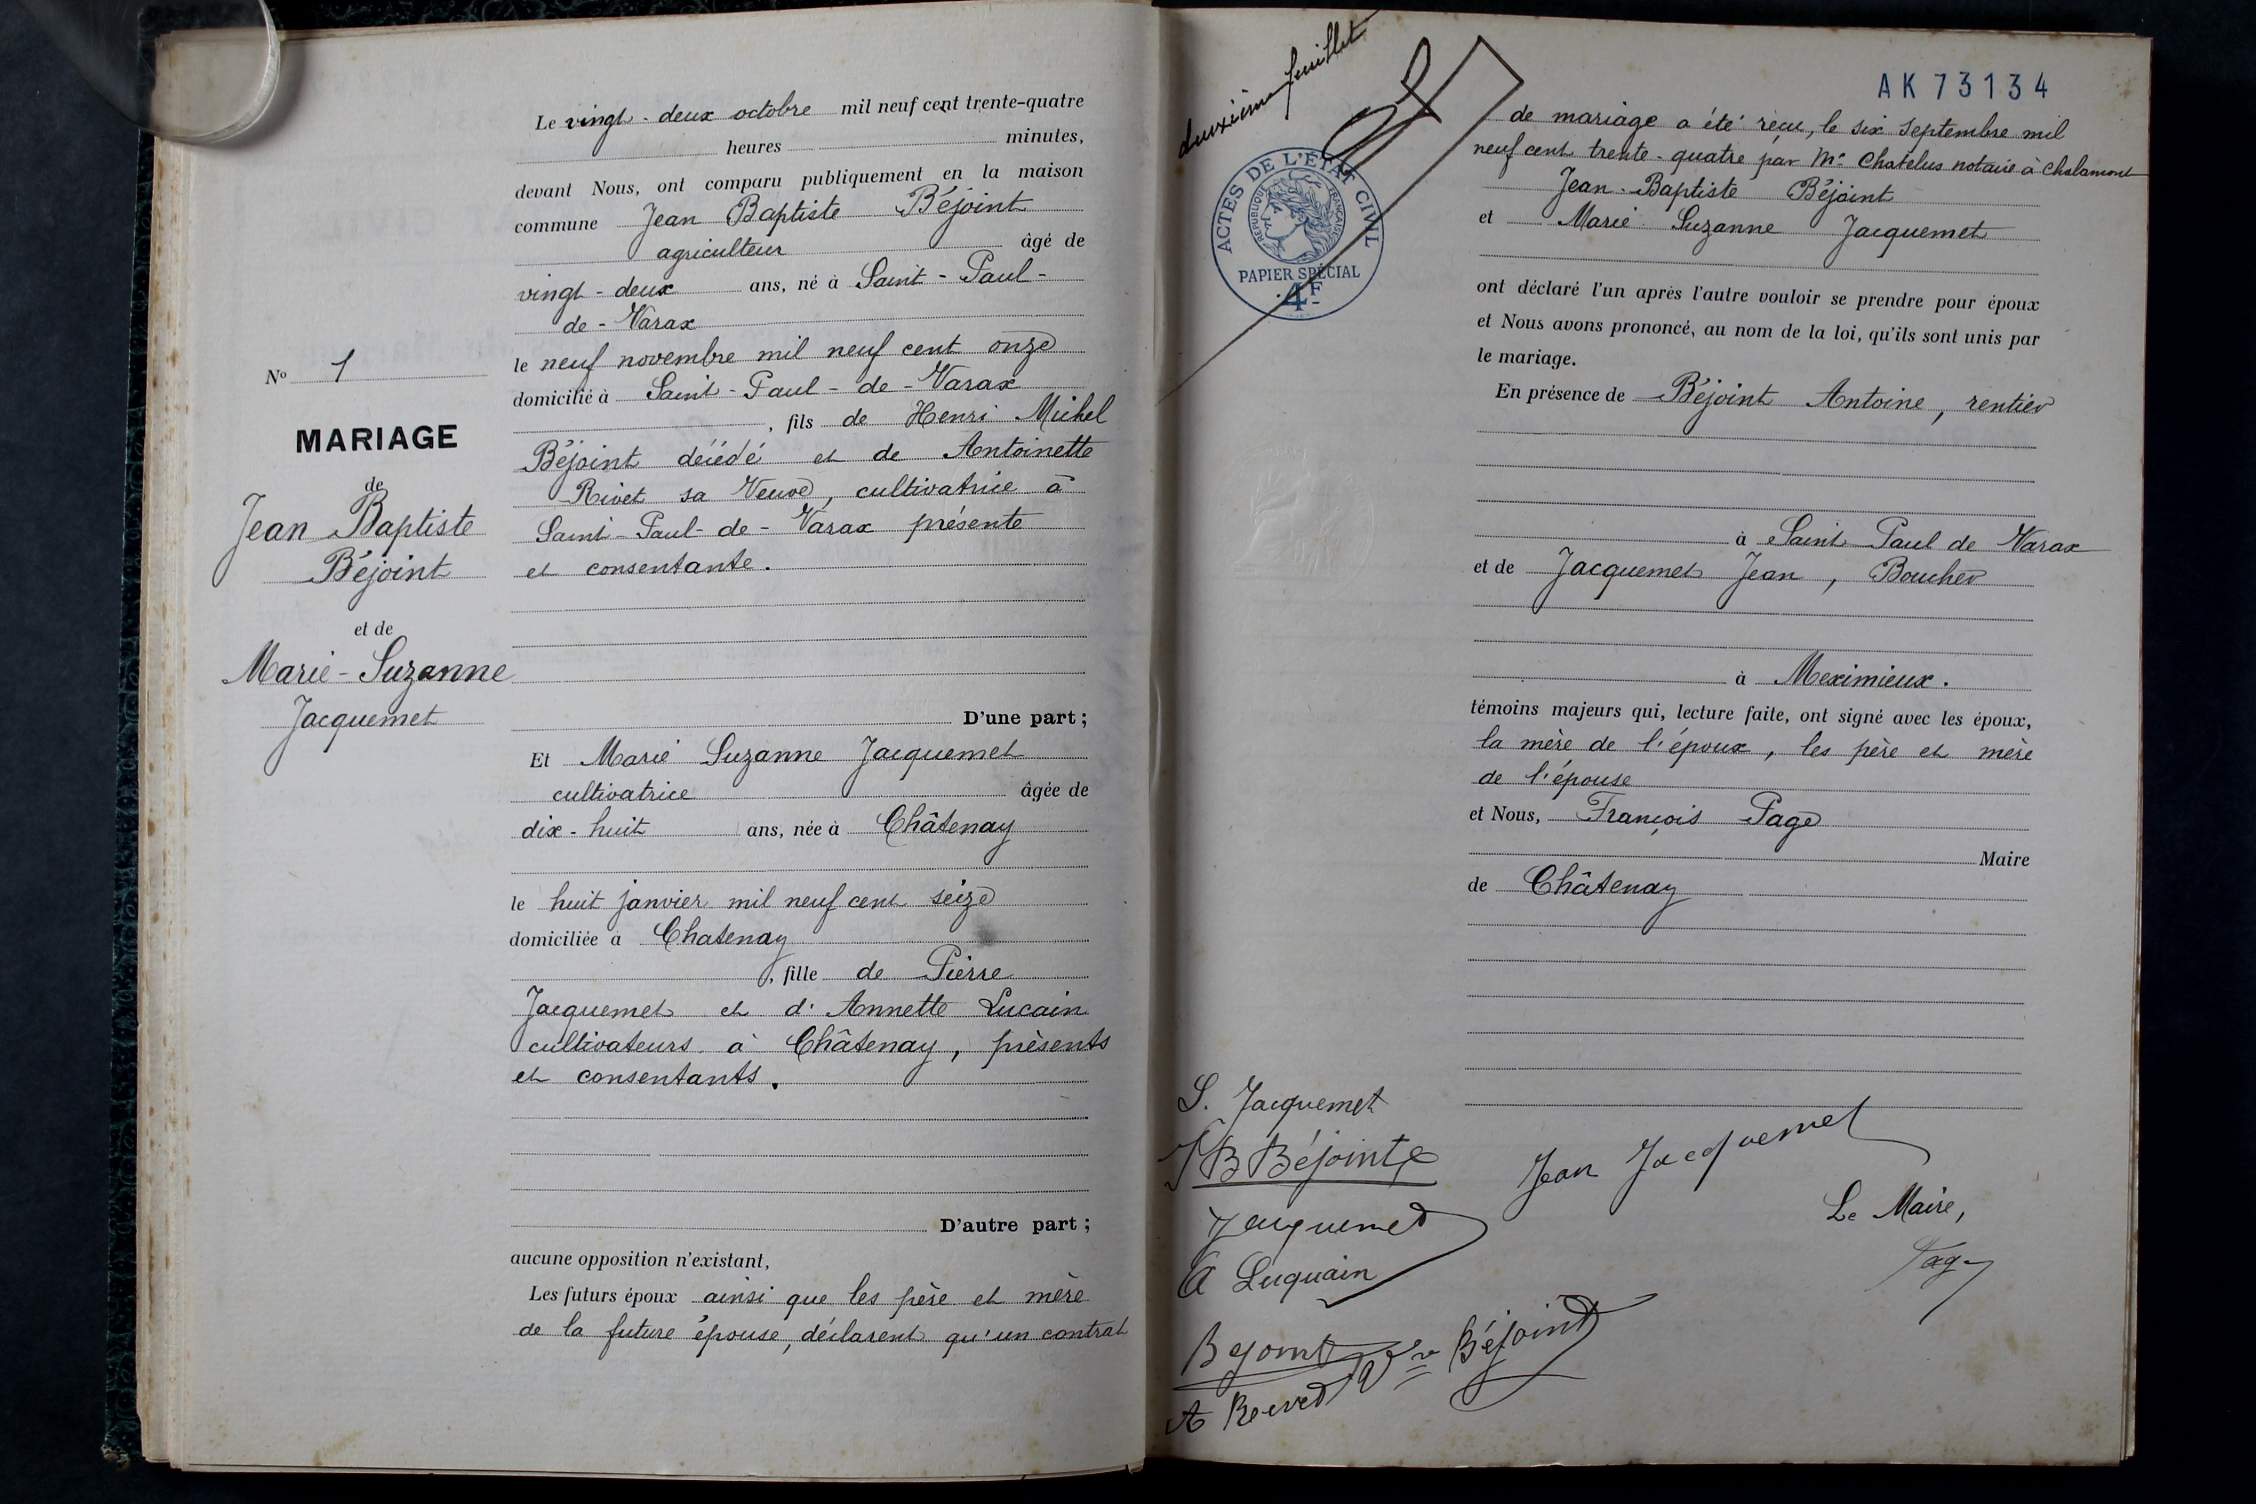 N° 1
MARIAGE
de
Jean Baptiste
Béjoint
et de
Marie-Suzanne
Jacquemet
Le vingt-deux octobre mil neuf cent trente-quatre
heures minutes,
devant Nous, ont comparu publiquement en la maison
commune Jean Baptiste Béjoint
agriculteur âgé de
vingt-deux ans, né à Saint-Paul-
de-Varax
le neuf novembre mil neuf cent onze
domicilié à Saint-Paul-de-Varax
, fils de Henri Michel
Béjoint décédé et de Antoinette
Rivet sa Veuve, cultivatrice à
Saint-Paul-de-Varax présente
et consentante.
D'une part;
Et Marie Suzanne Jacquemet
cultivatrice âgée de
dix-huit ans, née à Châtenay
le huit janvier mil neuf cent seize
domiciliée à Chatenay
, fille de Pierre
Jacquemet et d'Annette Lucain
cultivateurs à Châtenay, présents
et consentants.
D'autre part;
aucune opposition n'existant,
Les futurs époux ainsi que les père et mère
de la future épouse, déclarent qu'un contrat
deuxième feuillet
ACTES DE L'ÉTAT CIVIL
RÉPUBLIQUE FRANÇAISE
PAPIER SPÉCIAL
4F
AK 73134
de mariage a été reçu, le six septembre mil
neuf cent trente-quatre par Me Chatelus notaire à Chalamont
Jean-Baptiste Béjoint
et Marie Suzanne Jacquemet
ont déclaré l'un après l'autre vouloir se prendre pour époux
et Nous avons prononcé, au nom de la loi, qu'ils sont unis par
le mariage.
En présence de Béjoint Antoine, rentier
à Saint Paul de Varax
et de Jacquemet Jean, Boucher
à Meximieux.
témoins majeurs qui, lecture faite, ont signé avec les époux,
la mère de l'époux, les père et mère
de l'épouse
et Nous, François Page
Maire
de Châtenay
S. Jacquemet
JB Béjoint
Jean Jacquemet
Le Maire,
Page
Jacquemet
A Luquain
Bejoint
Vve Béjoint